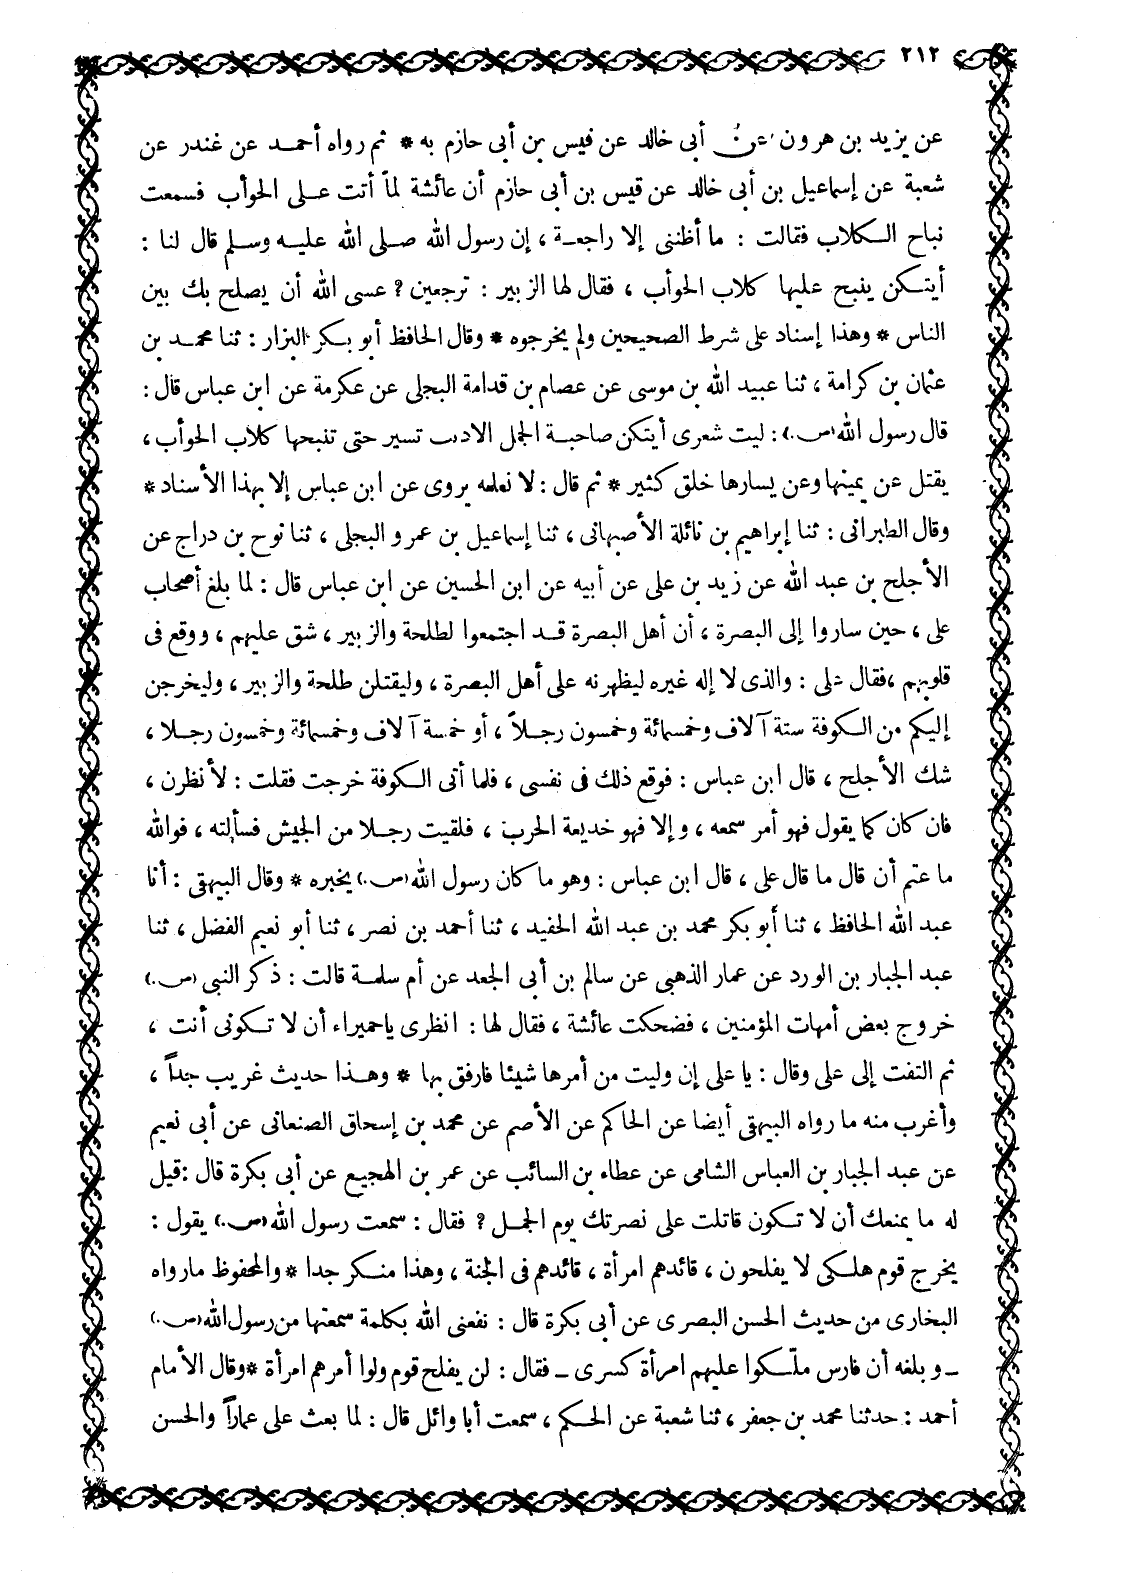 ٢١٢
عن يزيد بن هرون عن أبى خالد عن قيس بن أبى حازم به * ثم رواه أحمد عن غندر عن
شعبة عن إسماعيل بن أبى خالد عن قيس بن أبى حازم أن عائشة لمّا أتت على الحوأب فسمعت
نباح الكلاب فقالت : ما أظننى إلا راجعة ، إن رسول الله صلى الله عليه وسلم قال لنا :
أيتكن ينبح عليها كلاب الحوأب ، فقال لها الزبير : ترجعين ? عسى الله أن يصلح بك بين
الناس * وهذا إسناد على شرط الصحيحين ولم يخرجوه * وقال الحافظ أبو بكر البزار : ثنا محمد بن
عثمان بن كرامة ، ثنا عبيد الله بن موسى عن عصام بن قدامة البجلى عن عكرمة عن ابن عباس قال :
قال رسول الله (ص.) : ليت شعرى أيتكن صاحبة الجمل الادبب تسير حتى تنبحها كلاب الحوأب ،
يقتل عن يمينها وعن يسارها خلق كثير * ثم قال : لا نعلمه يروى عن ابن عباس إلا بهذا الأسناد *
وقال الطبرانى : ثنا إبراهيم بن نائلة الأصبهانى ، ثنا إسماعيل بن عمرو البجلى ، ثنا نوح بن دراج عن
الأجلح بن عبد الله عن زيد بن على عن أبيه عن ابن الحسين عن ابن عباس قال : لما بلغ أصحاب
على ، حين ساروا إلى البصرة ، أن أهل البصرة قد اجتمعوا لطلحة والزبير ، شق عليهم ، ووقع فى
قلوبهم ، فقال على : والذى لا إله غيره ليظهرنه على أهل البصرة ، وليقتلن طلحة والزبير ، وليخرجن
إليكم من الكوفة ستة آلاف وخمسمائة وخمسون رجلاً ، أو خمسة آلاف وخمسمائة وخمسون رجلا ،
شك الأجلح ، قال ابن عباس : فوقع ذلك فى نفسى ، فلما أتى الكوفة خرجت فقلت : لأنظرن ،
فان كان كما يقول فهو أمر سمعه ، وإلا فهو خديعة الحرب ، فلقيت رجلا من الجيش فسألته ، فوالله
ما عتم أن قال ما قال على ، قال ابن عباس : وهو ما كان رسول الله (ص.) يخبره * وقال البيهقى : أنا
عبد الله الحافظ ، ثنا أبو بكر محمد بن عبد الله الحفيد ، ثنا أحمد بن نصر ، ثنا أبو نعيم الفضل ، ثنا
عبد الجبار بن الورد عن عمار الذهبى عن سالم بن أبى الجعد عن أم سلمة قالت : ذكر النبى (ص.)
خروج بعض أمهات المؤمنين ، فضحكت عائشة ، فقال لها : انظرى ياحميراء أن لا تكونى أنت ،
ثم التفت إلى على وقال : يا على إن وليت من أمرها شيئا فارفق بها * وهذا حديث غريب جداً ،
وأغرب منه ما رواه البيهقى أيضا عن الحاكم عن الأصم عن محمد بن إسحاق الصنعانى عن أبى نعيم
عن عبد الجبار بن العباس الشامى عن عطاء بن السائب عن عمر بن الهجيع عن أبى بكرة قال : قيل
له ما يمنعك أن لا تكون قاتلت على نصرتك يوم الجمل ? فقال : سمعت رسول الله (ص.) يقول :
يخرج قوم هلكى لا يفلحون ، قائدهم امرأة ، قائدهم فى الجنة ، وهذا منكر جدا * والمحفوظ مارواه
البخارى من حديث الحسن البصرى عن أبى بكرة قال : نفعنى الله بكلمة سمعتها من رسول الله (ص.)
ـ و بلغه أن فارس ملّكوا عليهم امرأة كسرى ـ فقال : لن يفلح قوم ولوا أمرهم امرأة * وقال الأمام
أحمد : حدثنا محمد بن جعفر ، ثنا شعبة عن الحكم ، سمعت أبا وائل قال : لما بعث على عماراً والحسن